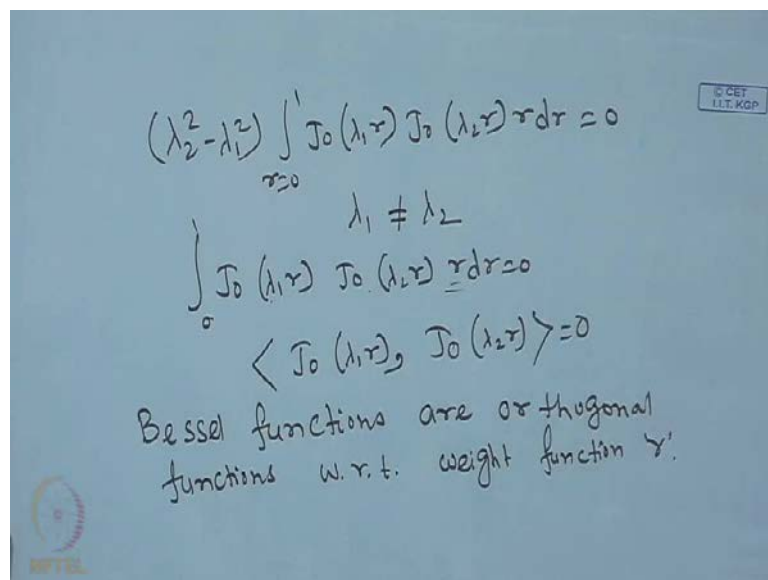 © CET
I.I.T. KGP
(λ₂² - λ₁²) ∫_{r=0}^{1} J₀(λ₁r) J₀(λ₂r) r dr = 0
λ₁ ≠ λ₂
∫₀¹ J₀(λ₁r) J₀(λ₂r) r dr = 0
< J₀(λ₁r), J₀(λ₂r) > = 0
Bessel functions are orthogonal
functions w.r.t. weight function 'r'.
NPTEL